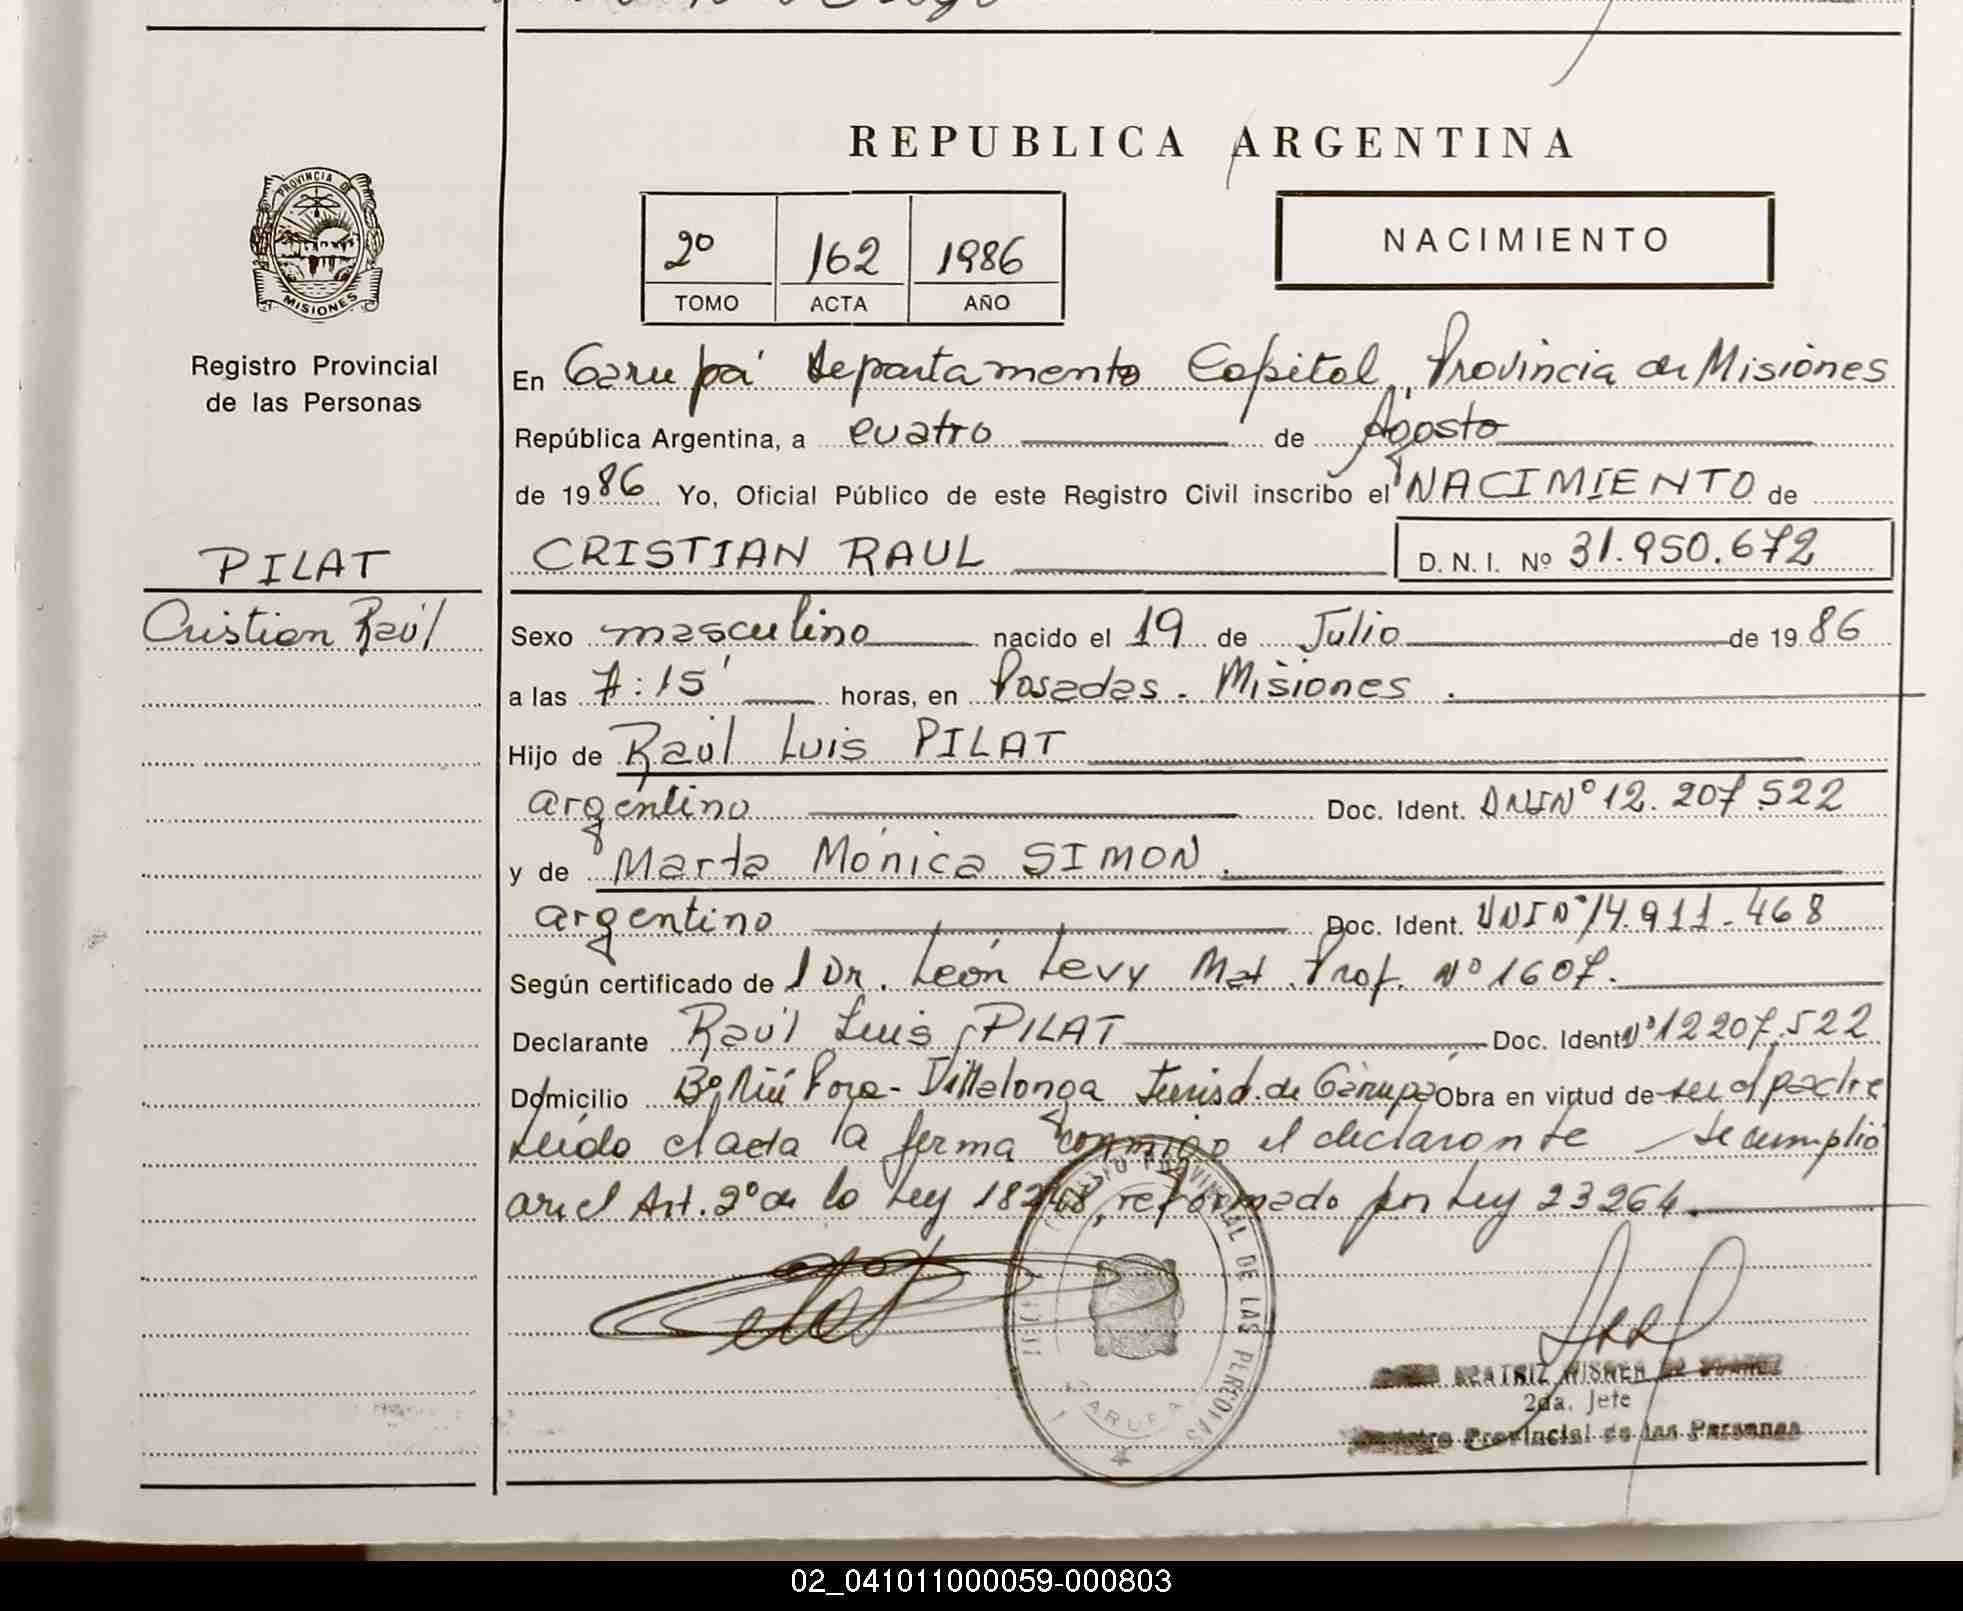 REPUBLICA ARGENTINA
PROVINCIA DE
MISIONES
Registro Provincial
de las Personas
2º 162 1986
TOMO ACTA AÑO
NACIMIENTO
En Garupá departamento Capital, Provincia de Misiones
República Argentina, a cuatro de Agosto
de 1986 Yo, Oficial Público de este Registro Civil inscribo el NACIMIENTO de
PILAT
Cristian Raúl
CRISTIAN RAUL D. N. I. Nº 31.950.672
Sexo masculino nacido el 19 de Julio de 1986
a las 7:15' horas, en Posadas - Misiones.
Hijo de Raúl Luis PILAT
argentino Doc. Ident. DNIN° 12.207.522
y de Marta Mónica SIMON.
argentino Doc. Ident. DNIN° 14.911.468
Según certificado de l Dr. León Levy Mat. Prof. Nº 1607.
Declarante Raúl Luis PILAT Doc. Ident. Nº 12207.522
Domicilio Bº Ñú Pora - Villalonga Jurisd. de Garupá Obra en virtud de ser el padre
Leído el acta la firma conmigo el declarante se cumplió
con el Art. 2º de la Ley 18248, reformado por Ley 23264.
REGISTRO PROVINCIAL DE LAS PERSONAS
BEATRIZ
2da. Jefe
Registro Provincial de las Personas
02_041011000059-000803